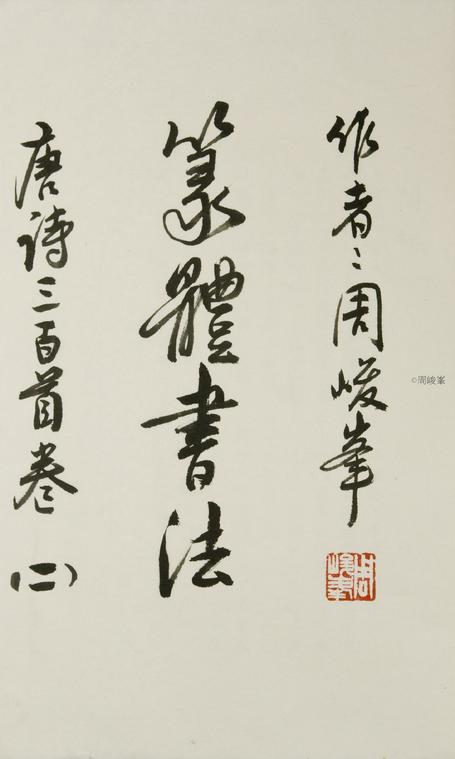 作者：周峻峯
篆體書法
唐詩三百首卷(二)
周峻峯
©周峻峯